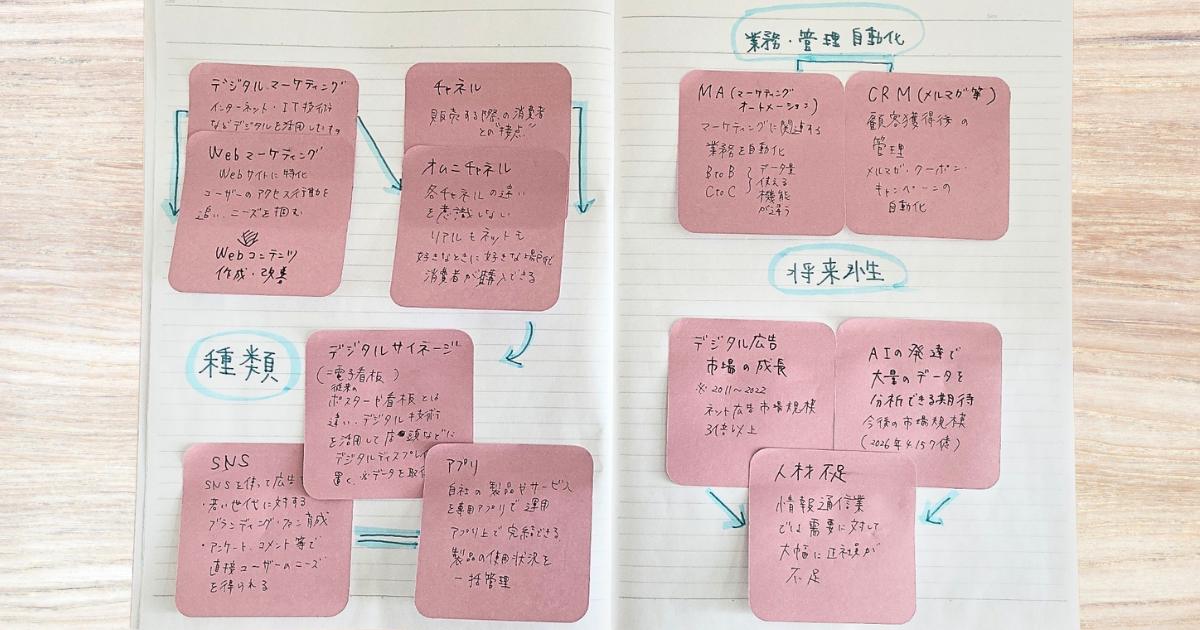 デジタルマーケティング
インターネット・IT技術
などデジタルを活用したもの
Webマーケティング
Webサイトに特化
ユーザーのアクセス行動を
追い、ニーズを掴む
Webコンテンツ
作成・改善
チャネル
販売する際の消費者
との"接点"
オムニチャネル
各チャネルの違い
を意識しない
リアルもネットも
好きなときに好きな場所で
消費者が購入できる
種類
デジタルサイネージ
(=電子看板)
従来の
ポスターや看板とは
違い、デジタル技術
を活用して店頭などに
デジタルディスプレイ
置く、※データを取
SNS
SNSを使って広告
・若い世代に対する
ブランディング・ファン育成
・アンケート、コメント等で
直接ユーザーのニーズ
を得られる
アプリ
自社の製品やサービス
を専用アプリで運用
アプリ上で完結できる
製品の使用状況を
一括管理
業務・管理 自動化
MA(マーケティング
オートメーション)
マーケティングに関連する
業務を自動化
BtoB
CtoC
データ量
使える
機能
が違う
CRM(メルマガ等)
顧客獲得後の
管理
メルマガ・クーポン・
キャンペーンの
自動化
将来性
デジタル広告
市場の成長
※2011~2022
ネット広告市場規模
3倍以上
AIの発達で
大量のデータを
分析できる期待
今後の市場規模
(2026年4.15倍)
人材不足
情報通信業
では需要に対して
大幅に正社員が
不足